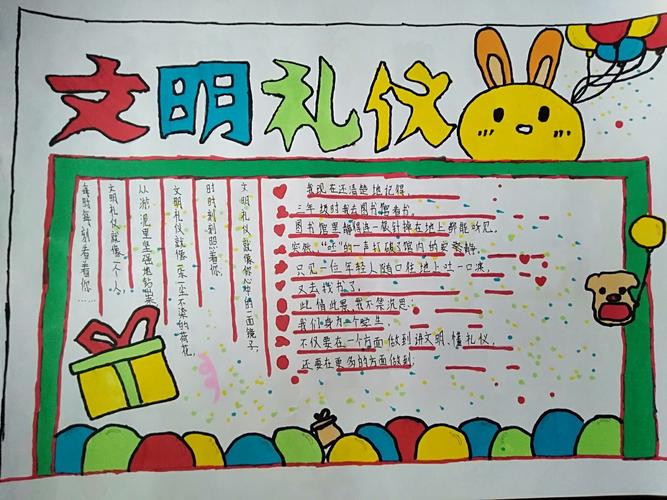 文明礼仪
文明礼仪就像你心中的一面镜子,
时时刻刻照着你.
文明礼仪就像一朵一尘不染的荷花,
从淤泥里坚强地钻出来
文明礼仪就像一个人,
每时每刻看着你……
我现在还清楚地记得,
三年级时我去图书馆看书.
图书馆里静得连一根针掉在地上都能听见.
突然,"呸"的一声打破了馆内的安静
只见一位年轻人随口往地上吐一口痰,
又去找书了.
此情此景,我不禁沉思:
我们身为一个学生,
不仅要在一个方面做到讲文明、懂礼仪,
还要在更多的方面做到.